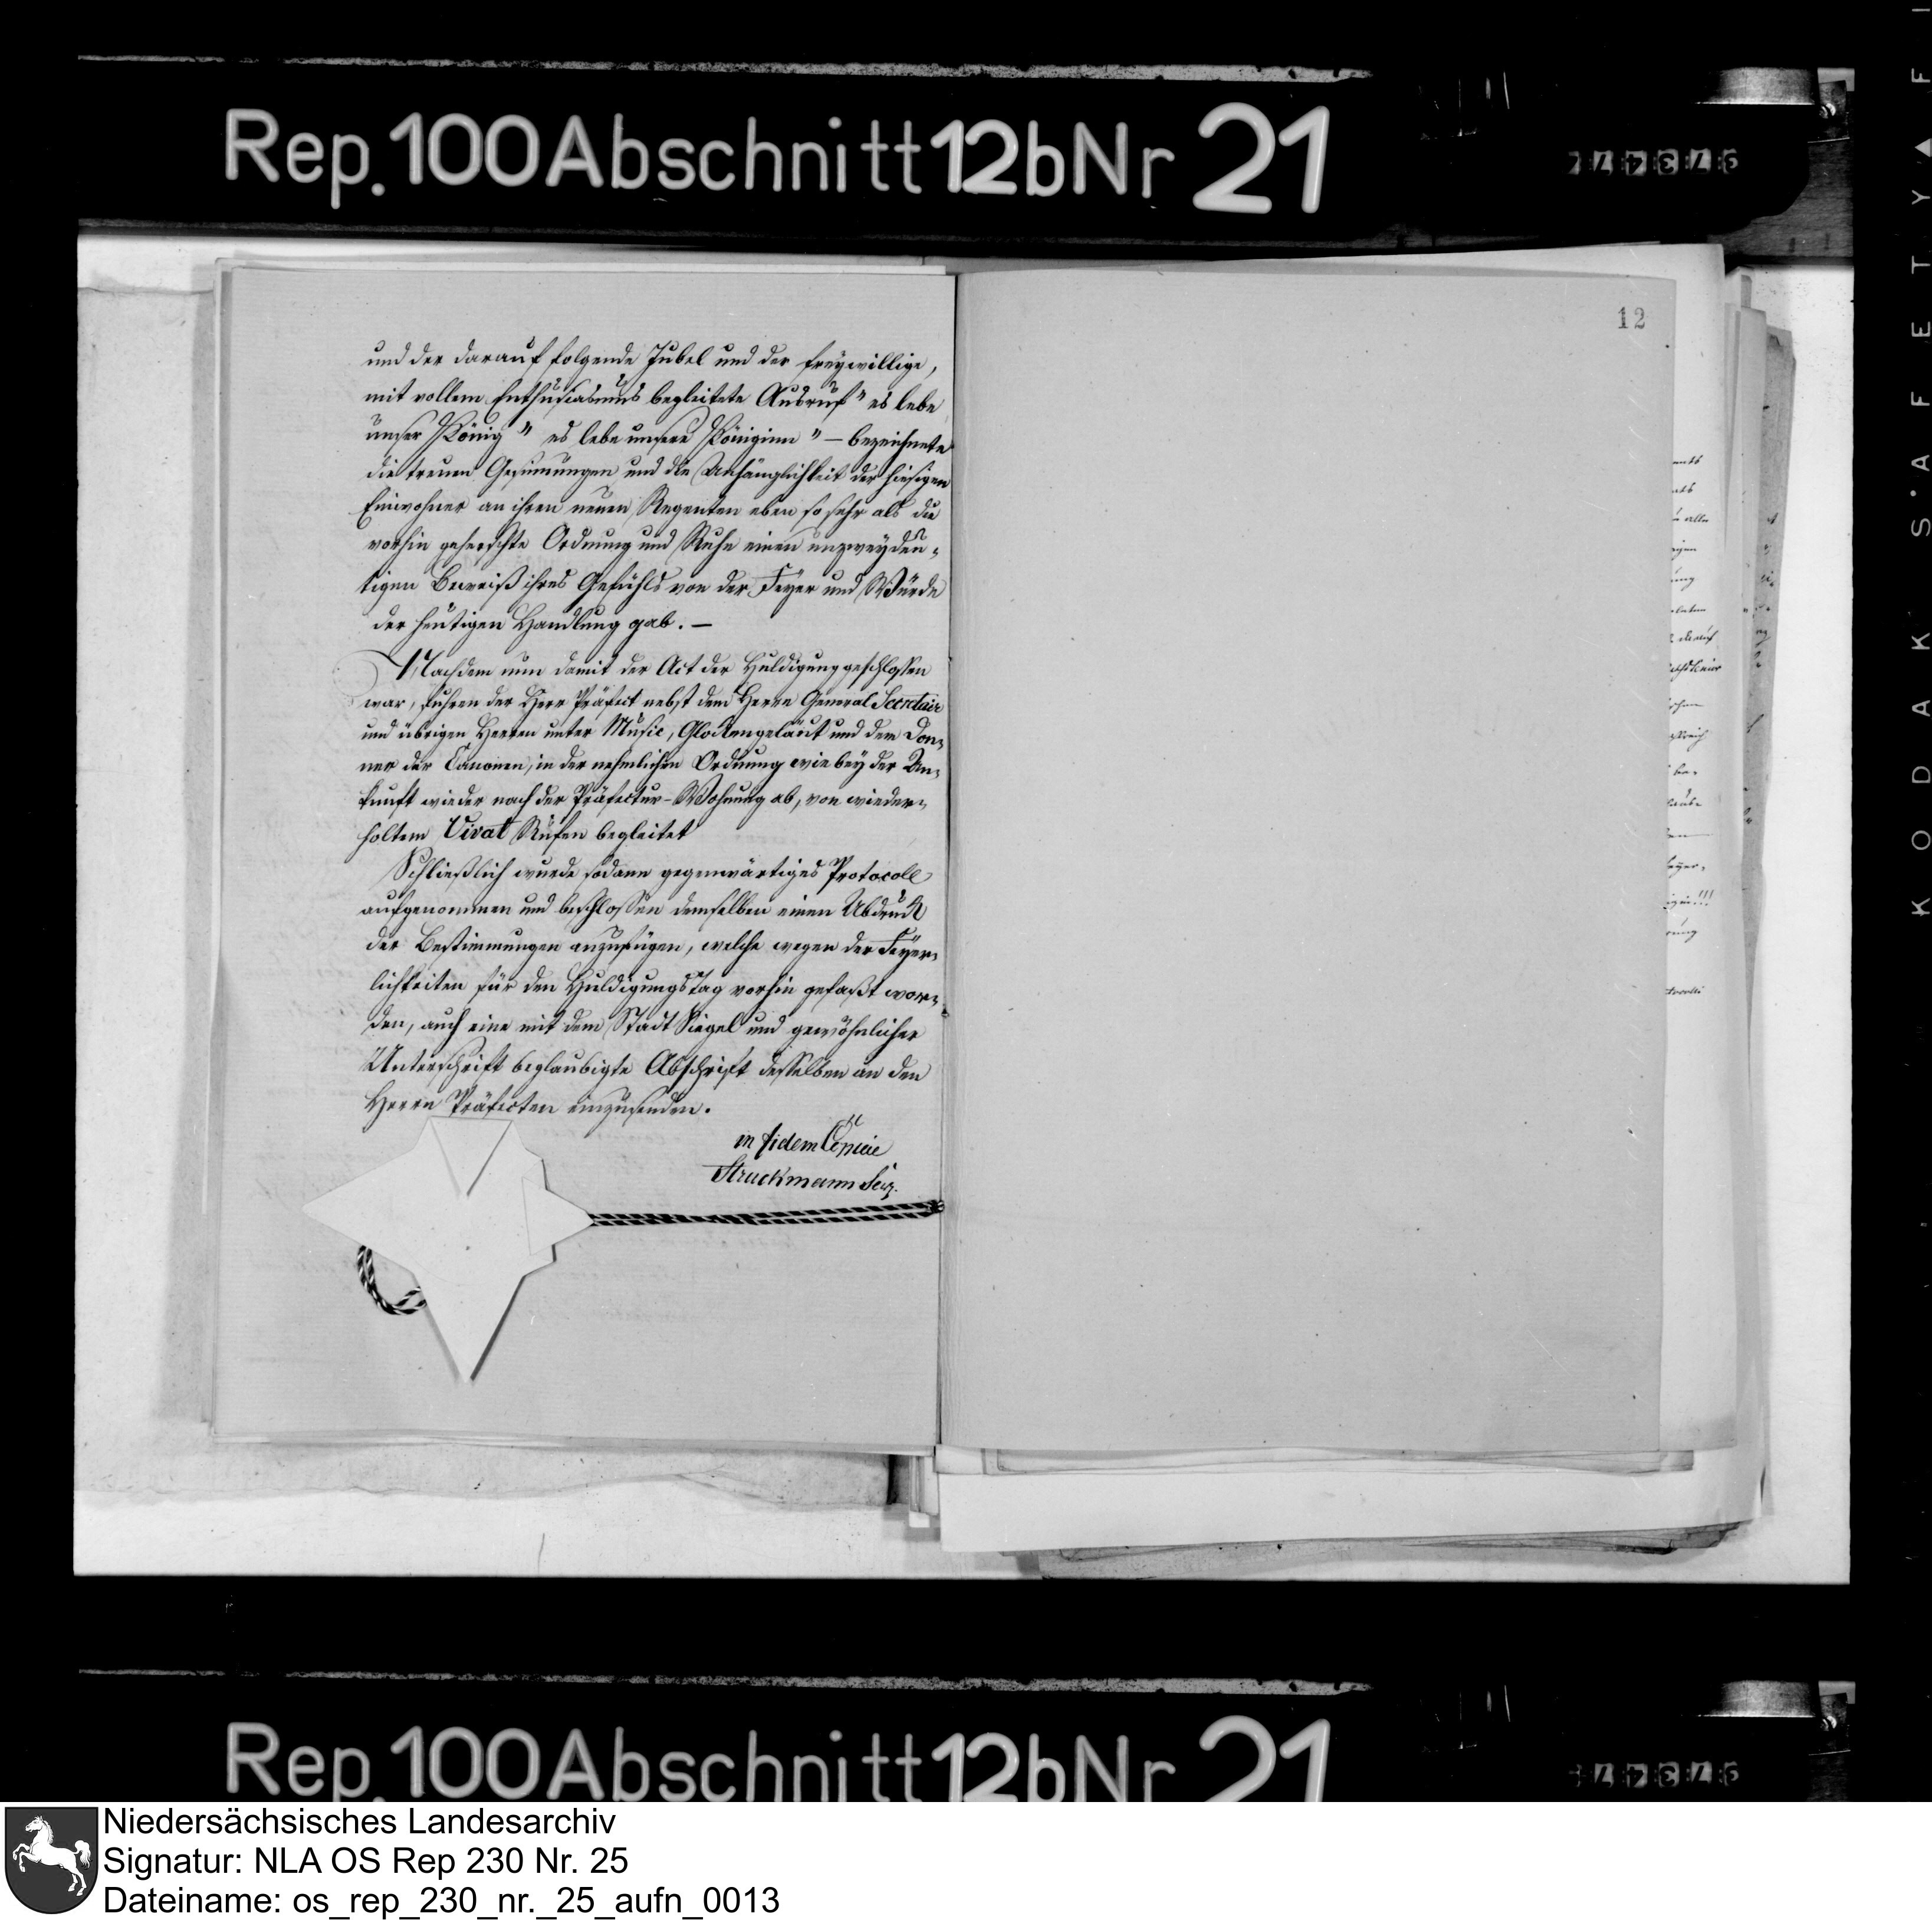 Rep. 100 Abschnitt 12b Nr 21
12
und der darauf folgende Jubel und der freywillige,
mit vollem Enthusiasmus begleitete Ausruf " es lebe
unser König " es lebe unsere Königinn " — bezeichnete
die treuen Gesinnungen und die Anhänglichkeit der hiesigen
Einwohner an ihren neuen Regenten eben so sehr als die
vorhin geherschte Ordnung und Ruhe einen unzweydeu-
tigen Beweiß ihres Gefühls von der Feyer und Würde
der heutigen Handlung gab. —
Nachdem nun damit der Act der Huldigung geschlossen
war, fuhren der Herr Präfect nebst dem Herrn General Secretair
und übrigen Herren unter Music, Glockengeläut und dem Don-
ner der Canonen, in der nehmlichen Ordnung wie bey der An-
kunft wieder nach der Präfectur-Wohnung ab, von wieder-
holtem Vivat Rufen begleitet
Schließlich wurde sodann gegenwärtiges Protocoll
aufgenommen und beschlossen demselben einen Abdruck
der Bestimmungen anzufügen, welche wegen der Feyer-
lichkeiten für den Huldigungstag vorhin gefaßt wor-
den, auch eine mit dem Stadt Siegel und gewöhnlicher
Unterschrift beglaubigte Abschrift desselben an den
Herrn Präfecten einzusenden.
in fidem Copiae
Struckmann Secr.
KODAK S·A·F·E·T·Y
Rep. 100 Abschnitt 12b Nr 21
Niedersächsisches Landesarchiv
Signatur: NLA OS Rep 230 Nr. 25
Dateiname: os_rep_230_nr._25_aufn_0013